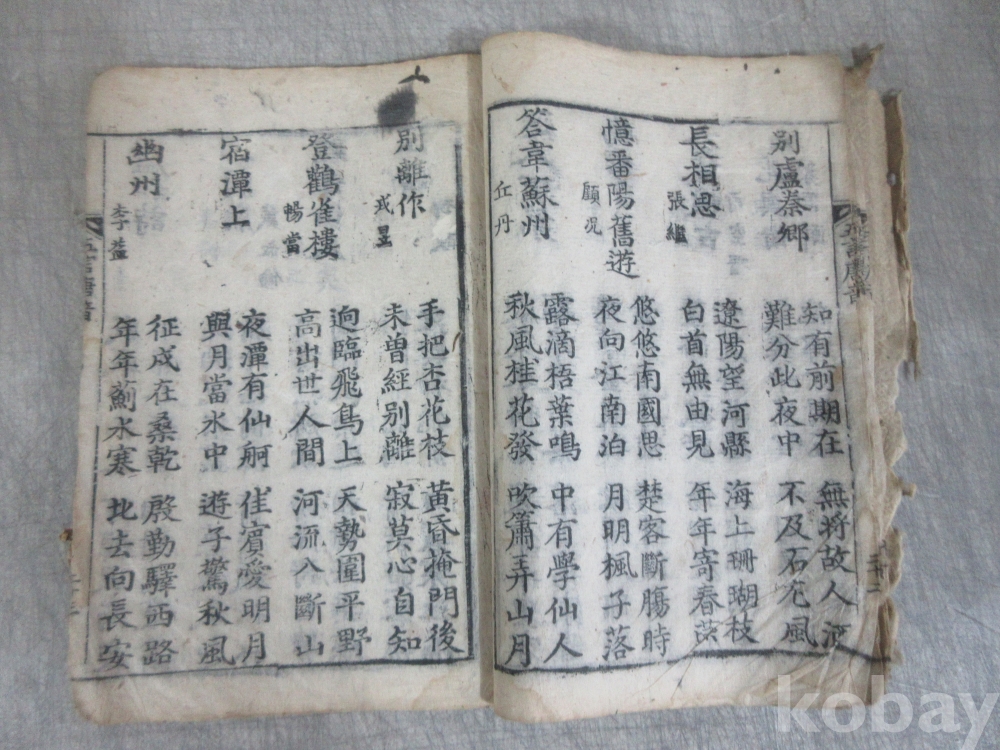 別盧秦鄉
知有前期在 無將故人酒
難分此夜中 不及石尤風
長相思
張繼
遼陽望河縣 海上珊瑚枝
白首無由見 年年寄春
憶番陽舊遊
顧况
悠悠南國思 楚客斷膓時
夜向江南泊 月明楓子落
答韋蘇州
丘丹
露滴梧葉鳴 中有學仙人
秋風桂花發 吹簫弄山月
別離作
戎昱
手把杏花枝 黃昏掩門後
未曾經別離 寂莫心自知
登鸛雀樓
暢當
逈臨飛鳥上 天勢圍平野
高出世人間 河流入斷山
宿潭上
夜潭有仙舸 佳賓愛明月
與月當水中 遊子驚秋風
幽州
李益
征戍在桑乾 殷勤驛西路
年年薊水寒 北去向長安
五言唐音
kobay